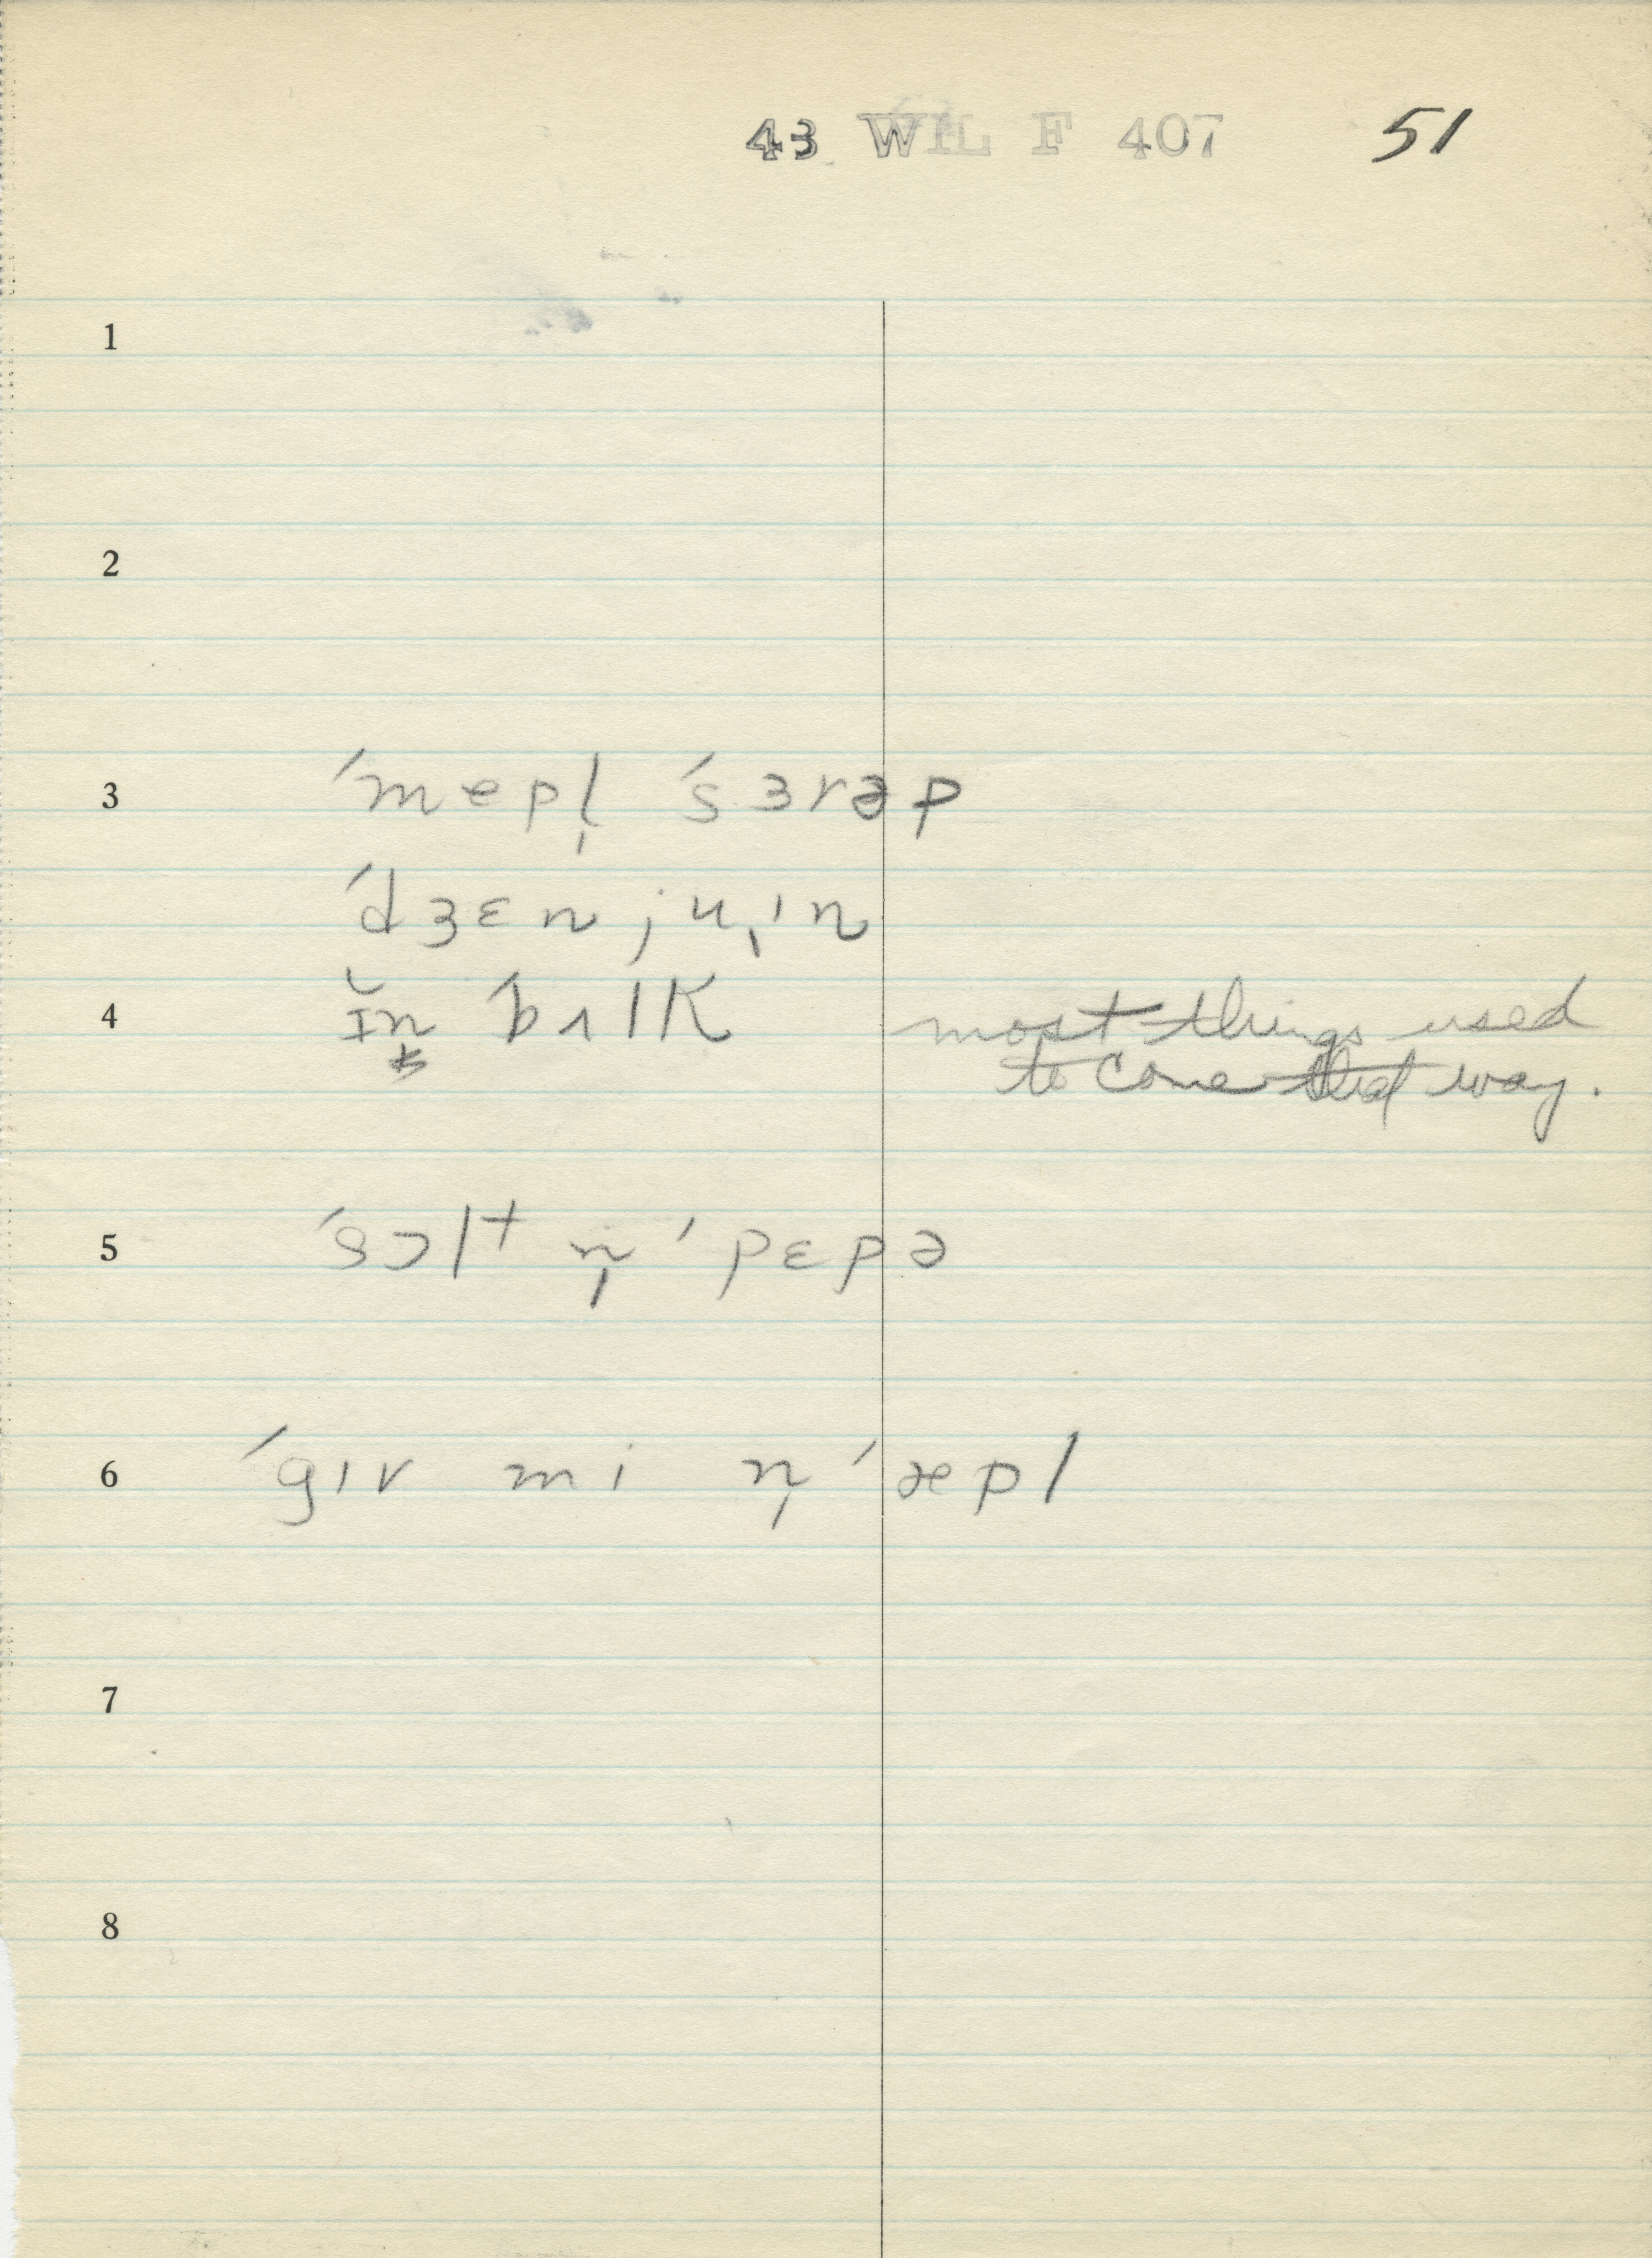 43 WIL F 407 51
1
2
3 ˈmepl̩ ˈsɜrəp
ˈdʒɛnjuˌɪn
4 ɪ̆n ˈbʌlk most things used
to come that way.
5 ˈsɔlt n̩ ˈpɛpə
6 ˈgɪv mi n̩ ˈæpl
7
8